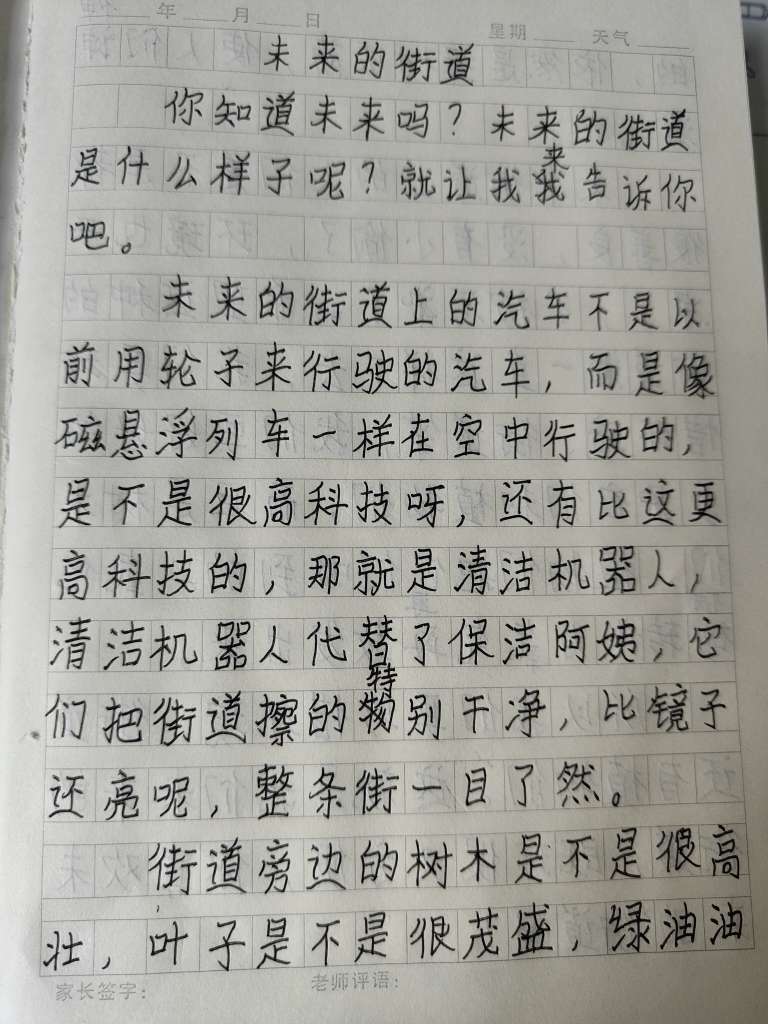 年 月 日
星期 天气
未来的街道
你知道未来吗？未来的街道
是什么样子呢？就让我来告诉你
吧。
未来的街道上的汽车不是以
前用轮子来行驶的汽车，而是像
磁悬浮列车一样在空中行驶的，
是不是很高科技呀，还有比这更
高科技的，那就是清洁机器人，
清洁机器人代替了保洁阿姨，它
们把街道擦的特别干净，比镜子
还亮呢，整条街一目了然。
街道旁边的树木是不是很高
壮，叶子是不是很茂盛，绿油油
家长签字： 老师评语：